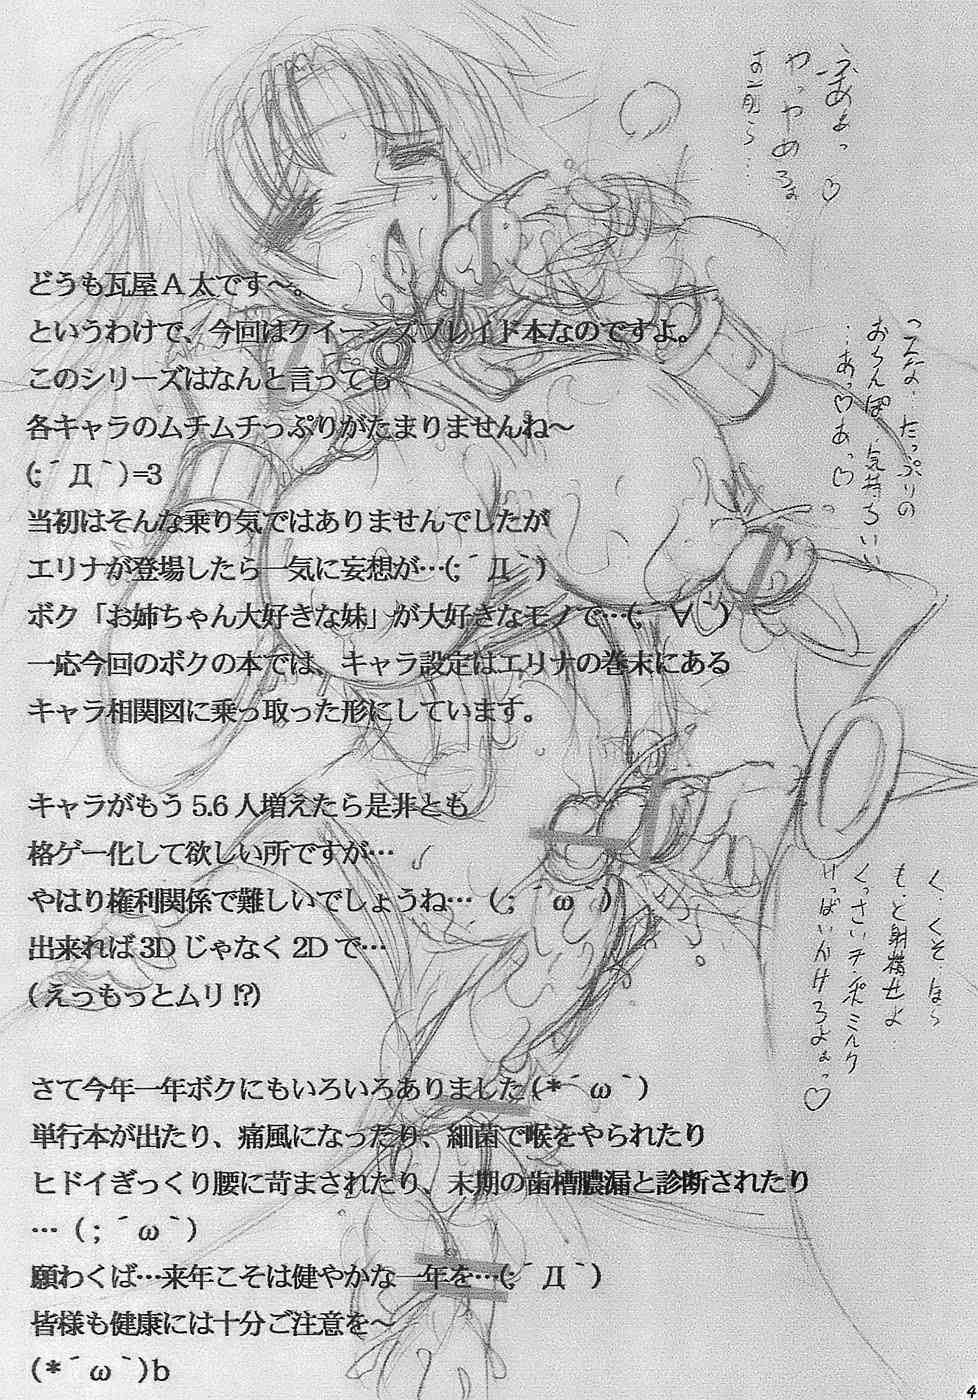 どうも瓦屋A太です～。
というわけで、今回はクイーンズブレイド本なのですよ。
このシリーズはなんと言っても
各キャラのムチムチっぷりがたまりませんね～
(;´Д｀)=3
当初はそんな乗り気ではありませんでしたが
エリナが登場したら一気に妄想が…(;´Д｀)
ボク「お姉ちゃん大好きな妹」が大好きなモノで…(;´∀｀)
一応今回のボクの本では、キャラ設定はエリナの巻末にある
キャラ相関図に乗っ取った形にしています。
キャラがもう5.6人増えたら是非とも
格ゲー化して欲しい所ですが…
やはり権利関係で難しいでしょうね…（;´ω｀）
出来れば3Dじゃなく2Dで…
(えっもっとムリ!?)
さて今年一年ボクにもいろいろありました(*´ω｀)
単行本が出たり、痛風になったり、細菌で喉をやられたり
ヒドイぎっくり腰に苛まされたり、末期の歯槽膿漏と診断されたり
…（;´ω｀）
願わくば…来年こそは健やかな一年を…(;´Д｀)
皆様も健康には十分ご注意を～
(*´ω｀)b
やっやめろぉ
こんな、たっぷりの
おちんぽ、気持ちいい
…あっ♡あっ♡
く、くそ、ほら
もっと射精せよ
くっさいチンポミルク
いっぱいかけろよぉっ♡
4